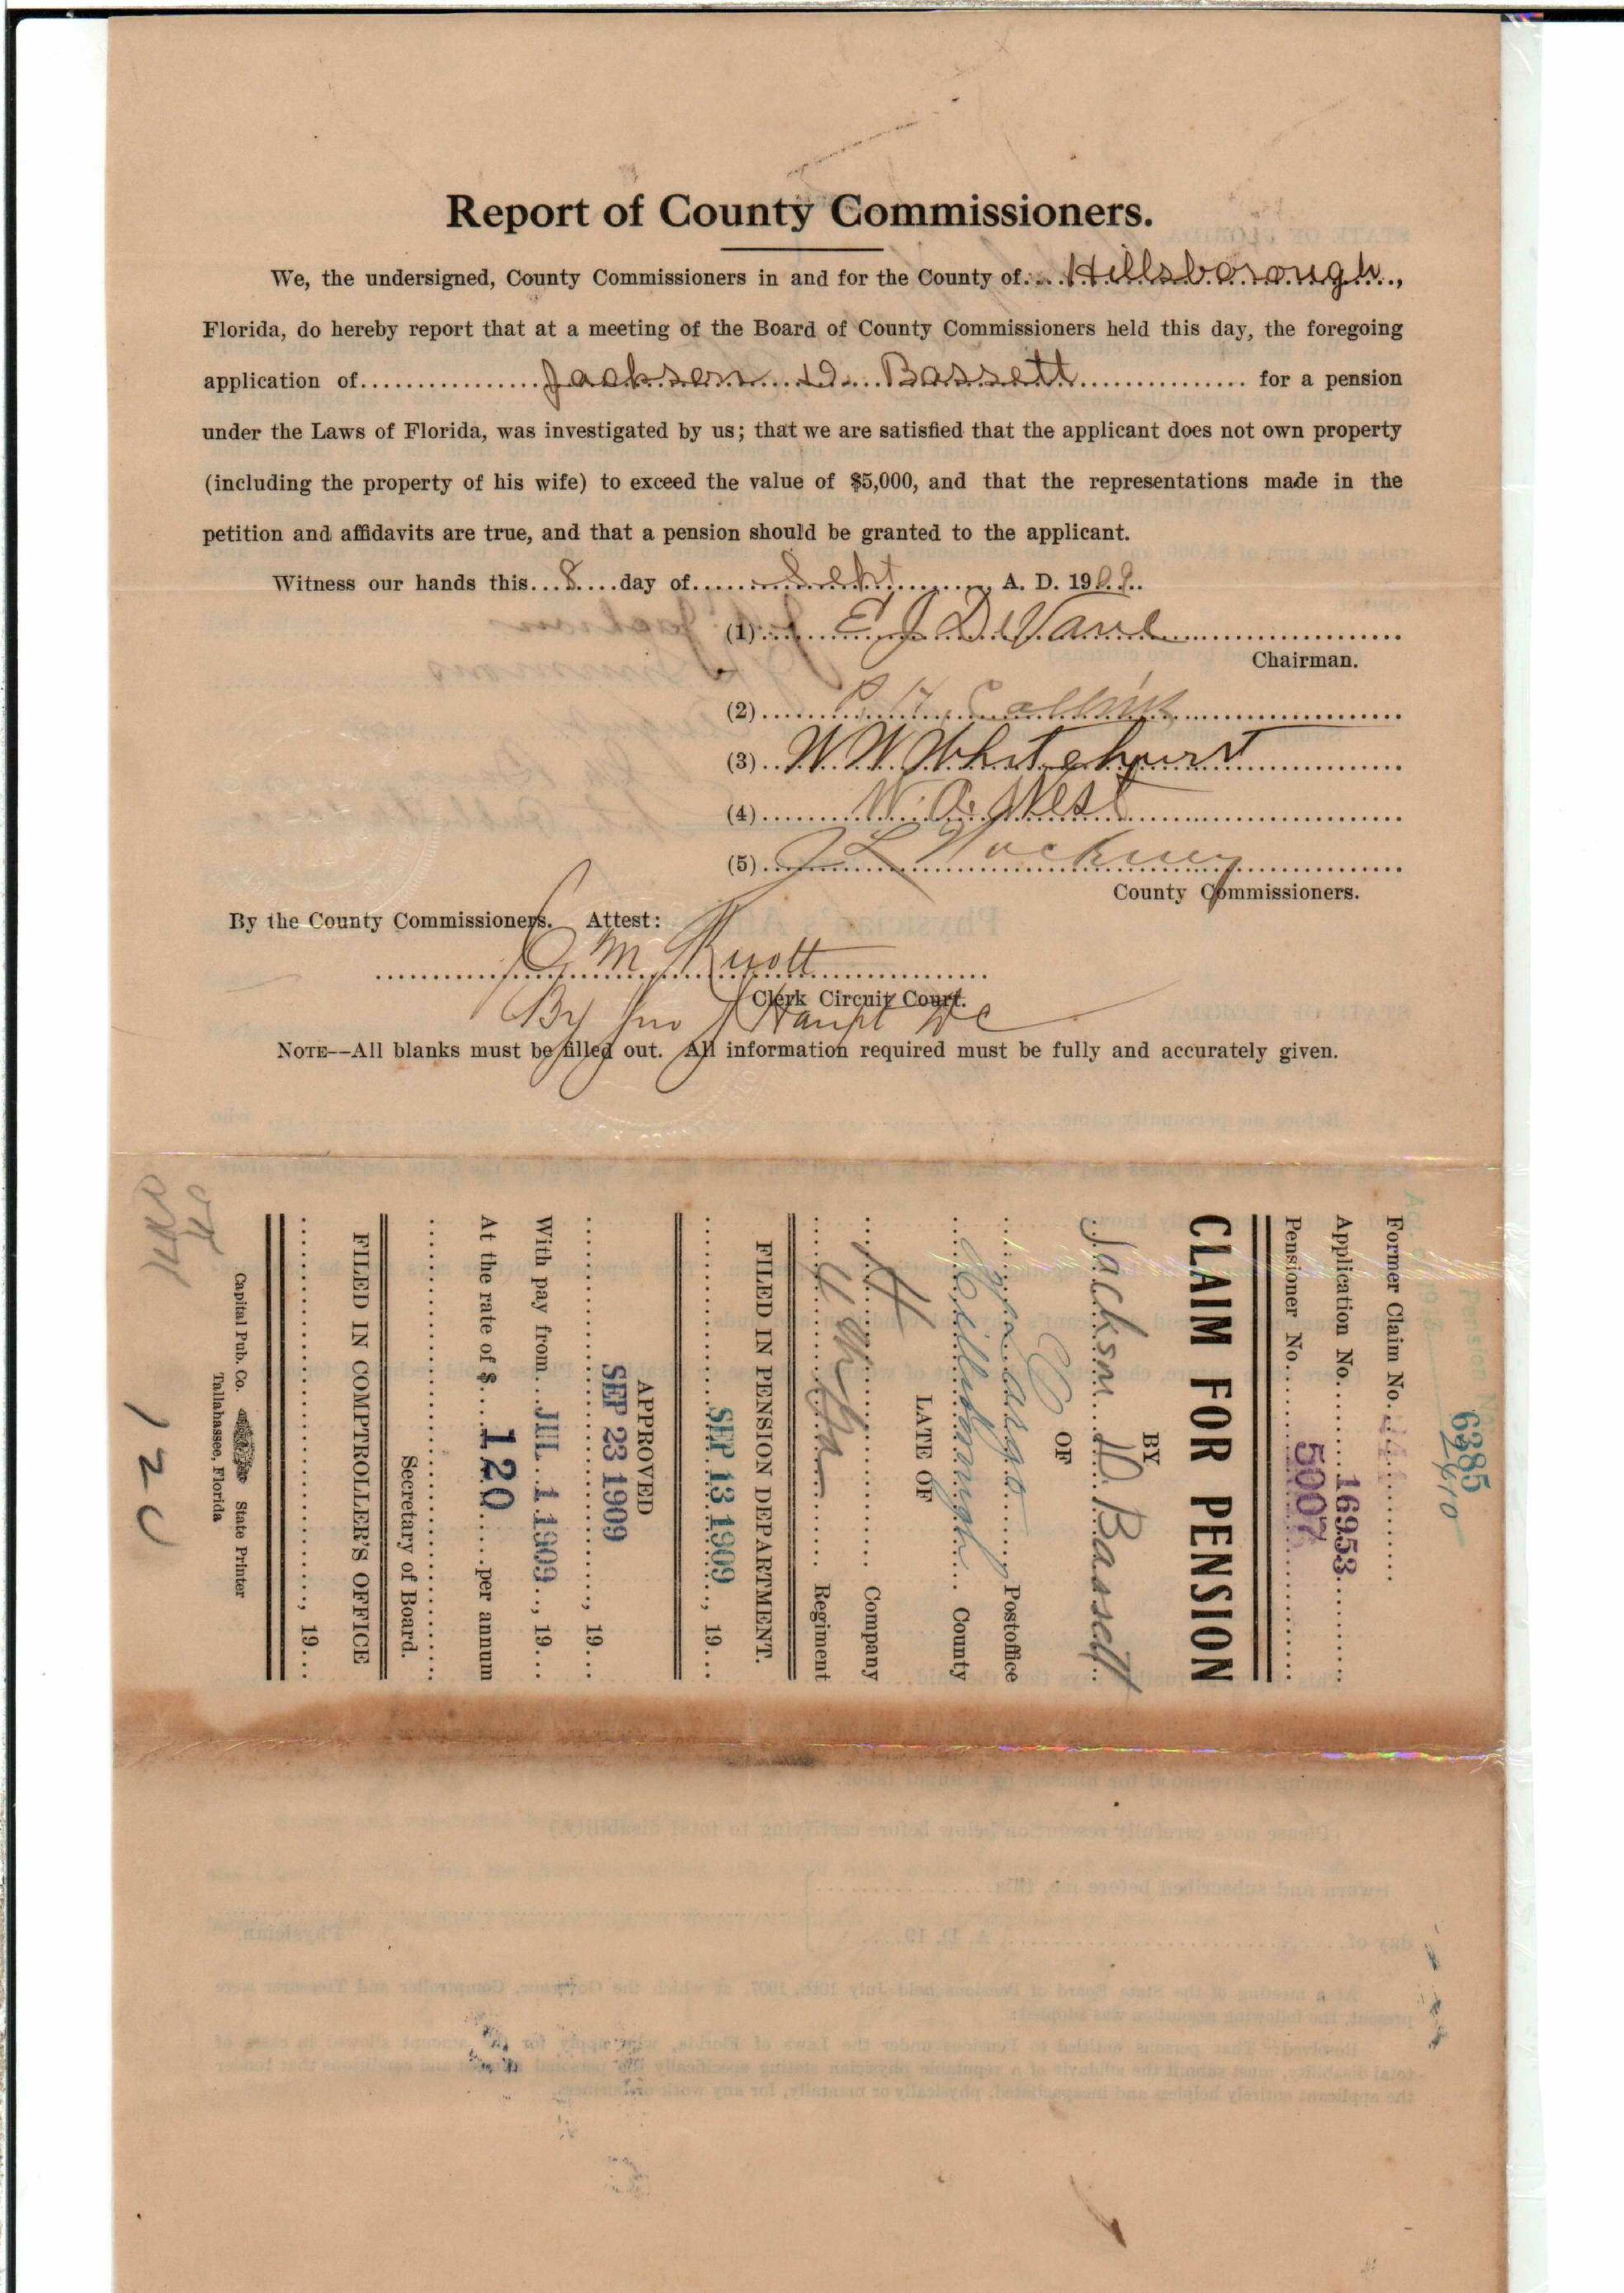 Report of County Commissioners.
We, the undersigned, County Commissioners in and for the County of Hillsborough,
Florida, do hereby report that at a meeting of the Board of County Commissioners held this day, the foregoing
application of Jackson D. Bassett for a pension
under the Laws of Florida, was investigated by us; that we are satisfied that the applicant does not own property
(including the property of his wife) to exceed the value of $5,000, and that the representations made in the
petition and affidavits are true, and that a pension should be granted to the applicant.
Witness our hands this 8 day of Sept, A. D. 1909.
(1) E J DeVane
Chairman.
(2)
(3) W. W. Whitehurst
(4) W. A. West
(5) J L
County Commissioners.
By the County Commissioners. Attest:
M. Knott
Clerk Circuit Court.
By Jno Haupt DC
NOTE--All blanks must be filled out. All information required must be fully and accurately given.
Pension No. 6385
Former Claim No.
Application No. 16953
Pensioner No. 5007
CLAIM FOR PENSION
BY
Jackson D. Bassett
OF
Postoffice
Hillsborough County
LATE OF
H Company
4 Regiment
FILED IN PENSION DEPARTMENT.
SEP 13 1909, 19
APPROVED
SEP 23 1909, 19
With pay from JUL 1 1909, 19
At the rate of $ 120 per annum
Secretary of Board.
FILED IN COMPTROLLER'S OFFICE
, 19
Capital Pub. Co. State Printer
Tallahassee, Florida
120